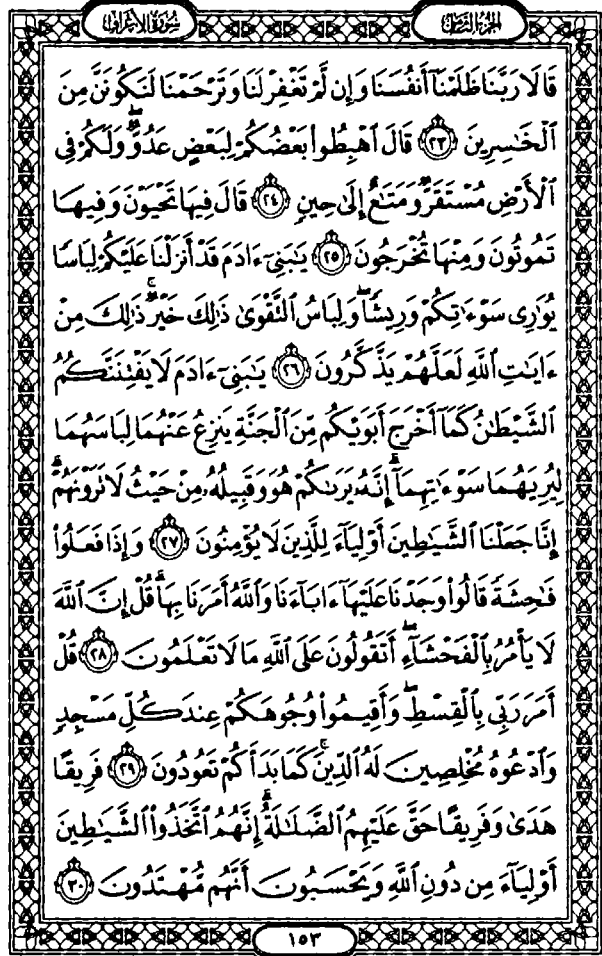 سورة الأعراف
الجزء الثامن
قَالَا رَبَّنَا ظَلَمْنَآ أَنفُسَنَا وَإِن لَّمْ تَغْفِرْ لَنَا وَتَرْحَمْنَا لَنَكُونَنَّ مِنَ
ٱلْخَـٰسِرِينَ ۝٢٣ قَالَ ٱهْبِطُوا۟ بَعْضُكُمْ لِبَعْضٍ عَدُوٌّ ۖ وَلَكُمْ فِى
ٱلْأَرْضِ مُسْتَقَرٌّ وَمَتَـٰعٌ إِلَىٰ حِينٍ ۝٢٤ قَالَ فِيهَا تَحْيَوْنَ وَفِيهَا
تَمُوتُونَ وَمِنْهَا تُخْرَجُونَ ۝٢٥ يَـٰبَنِىٓ ءَادَمَ قَدْ أَنزَلْنَا عَلَيْكُمْ لِبَاسًا
يُوَٰرِى سَوْءَٰتِكُمْ وَرِيشًا ۖ وَلِبَاسُ ٱلتَّقْوَىٰ ذَٰلِكَ خَيْرٌ ۚ ذَٰلِكَ مِنْ
ءَايَـٰتِ ٱللَّهِ لَعَلَّهُمْ يَذَّكَّرُونَ ۝٢٦ يَـٰبَنِىٓ ءَادَمَ لَا يَفْتِنَنَّكُمُ
ٱلشَّيْطَـٰنُ كَمَآ أَخْرَجَ أَبَوَيْكُم مِّنَ ٱلْجَنَّةِ يَنزِعُ عَنْهُمَا لِبَاسَهُمَا
لِيُرِيَهُمَا سَوْءَٰتِهِمَآ ۗ إِنَّهُۥ يَرَىٰكُمْ هُوَ وَقَبِيلُهُۥ مِنْ حَيْثُ لَا تَرَوْنَهُمْ ۗ
إِنَّا جَعَلْنَا ٱلشَّيَـٰطِينَ أَوْلِيَآءَ لِلَّذِينَ لَا يُؤْمِنُونَ ۝٢٧ وَإِذَا فَعَلُوا۟
فَـٰحِشَةً قَالُوا۟ وَجَدْنَا عَلَيْهَآ ءَابَآءَنَا وَٱللَّهُ أَمَرَنَا بِهَا ۗ قُلْ إِنَّ ٱللَّهَ
لَا يَأْمُرُ بِٱلْفَحْشَآءِ ۖ أَتَقُولُونَ عَلَى ٱللَّهِ مَا لَا تَعْلَمُونَ ۝٢٨ قُلْ
أَمَرَ رَبِّى بِٱلْقِسْطِ ۖ وَأَقِيمُوا۟ وُجُوهَكُمْ عِندَ كُلِّ مَسْجِدٍ
وَٱدْعُوهُ مُخْلِصِينَ لَهُ ٱلدِّينَ ۚ كَمَا بَدَأَكُمْ تَعُودُونَ ۝٢٩ فَرِيقًا
هَدَىٰ وَفَرِيقًا حَقَّ عَلَيْهِمُ ٱلضَّلَـٰلَةُ ۗ إِنَّهُمُ ٱتَّخَذُوا۟ ٱلشَّيَـٰطِينَ
أَوْلِيَآءَ مِن دُونِ ٱللَّهِ وَيَحْسَبُونَ أَنَّهُم مُّهْتَدُونَ ۝٣٠
١٥٣